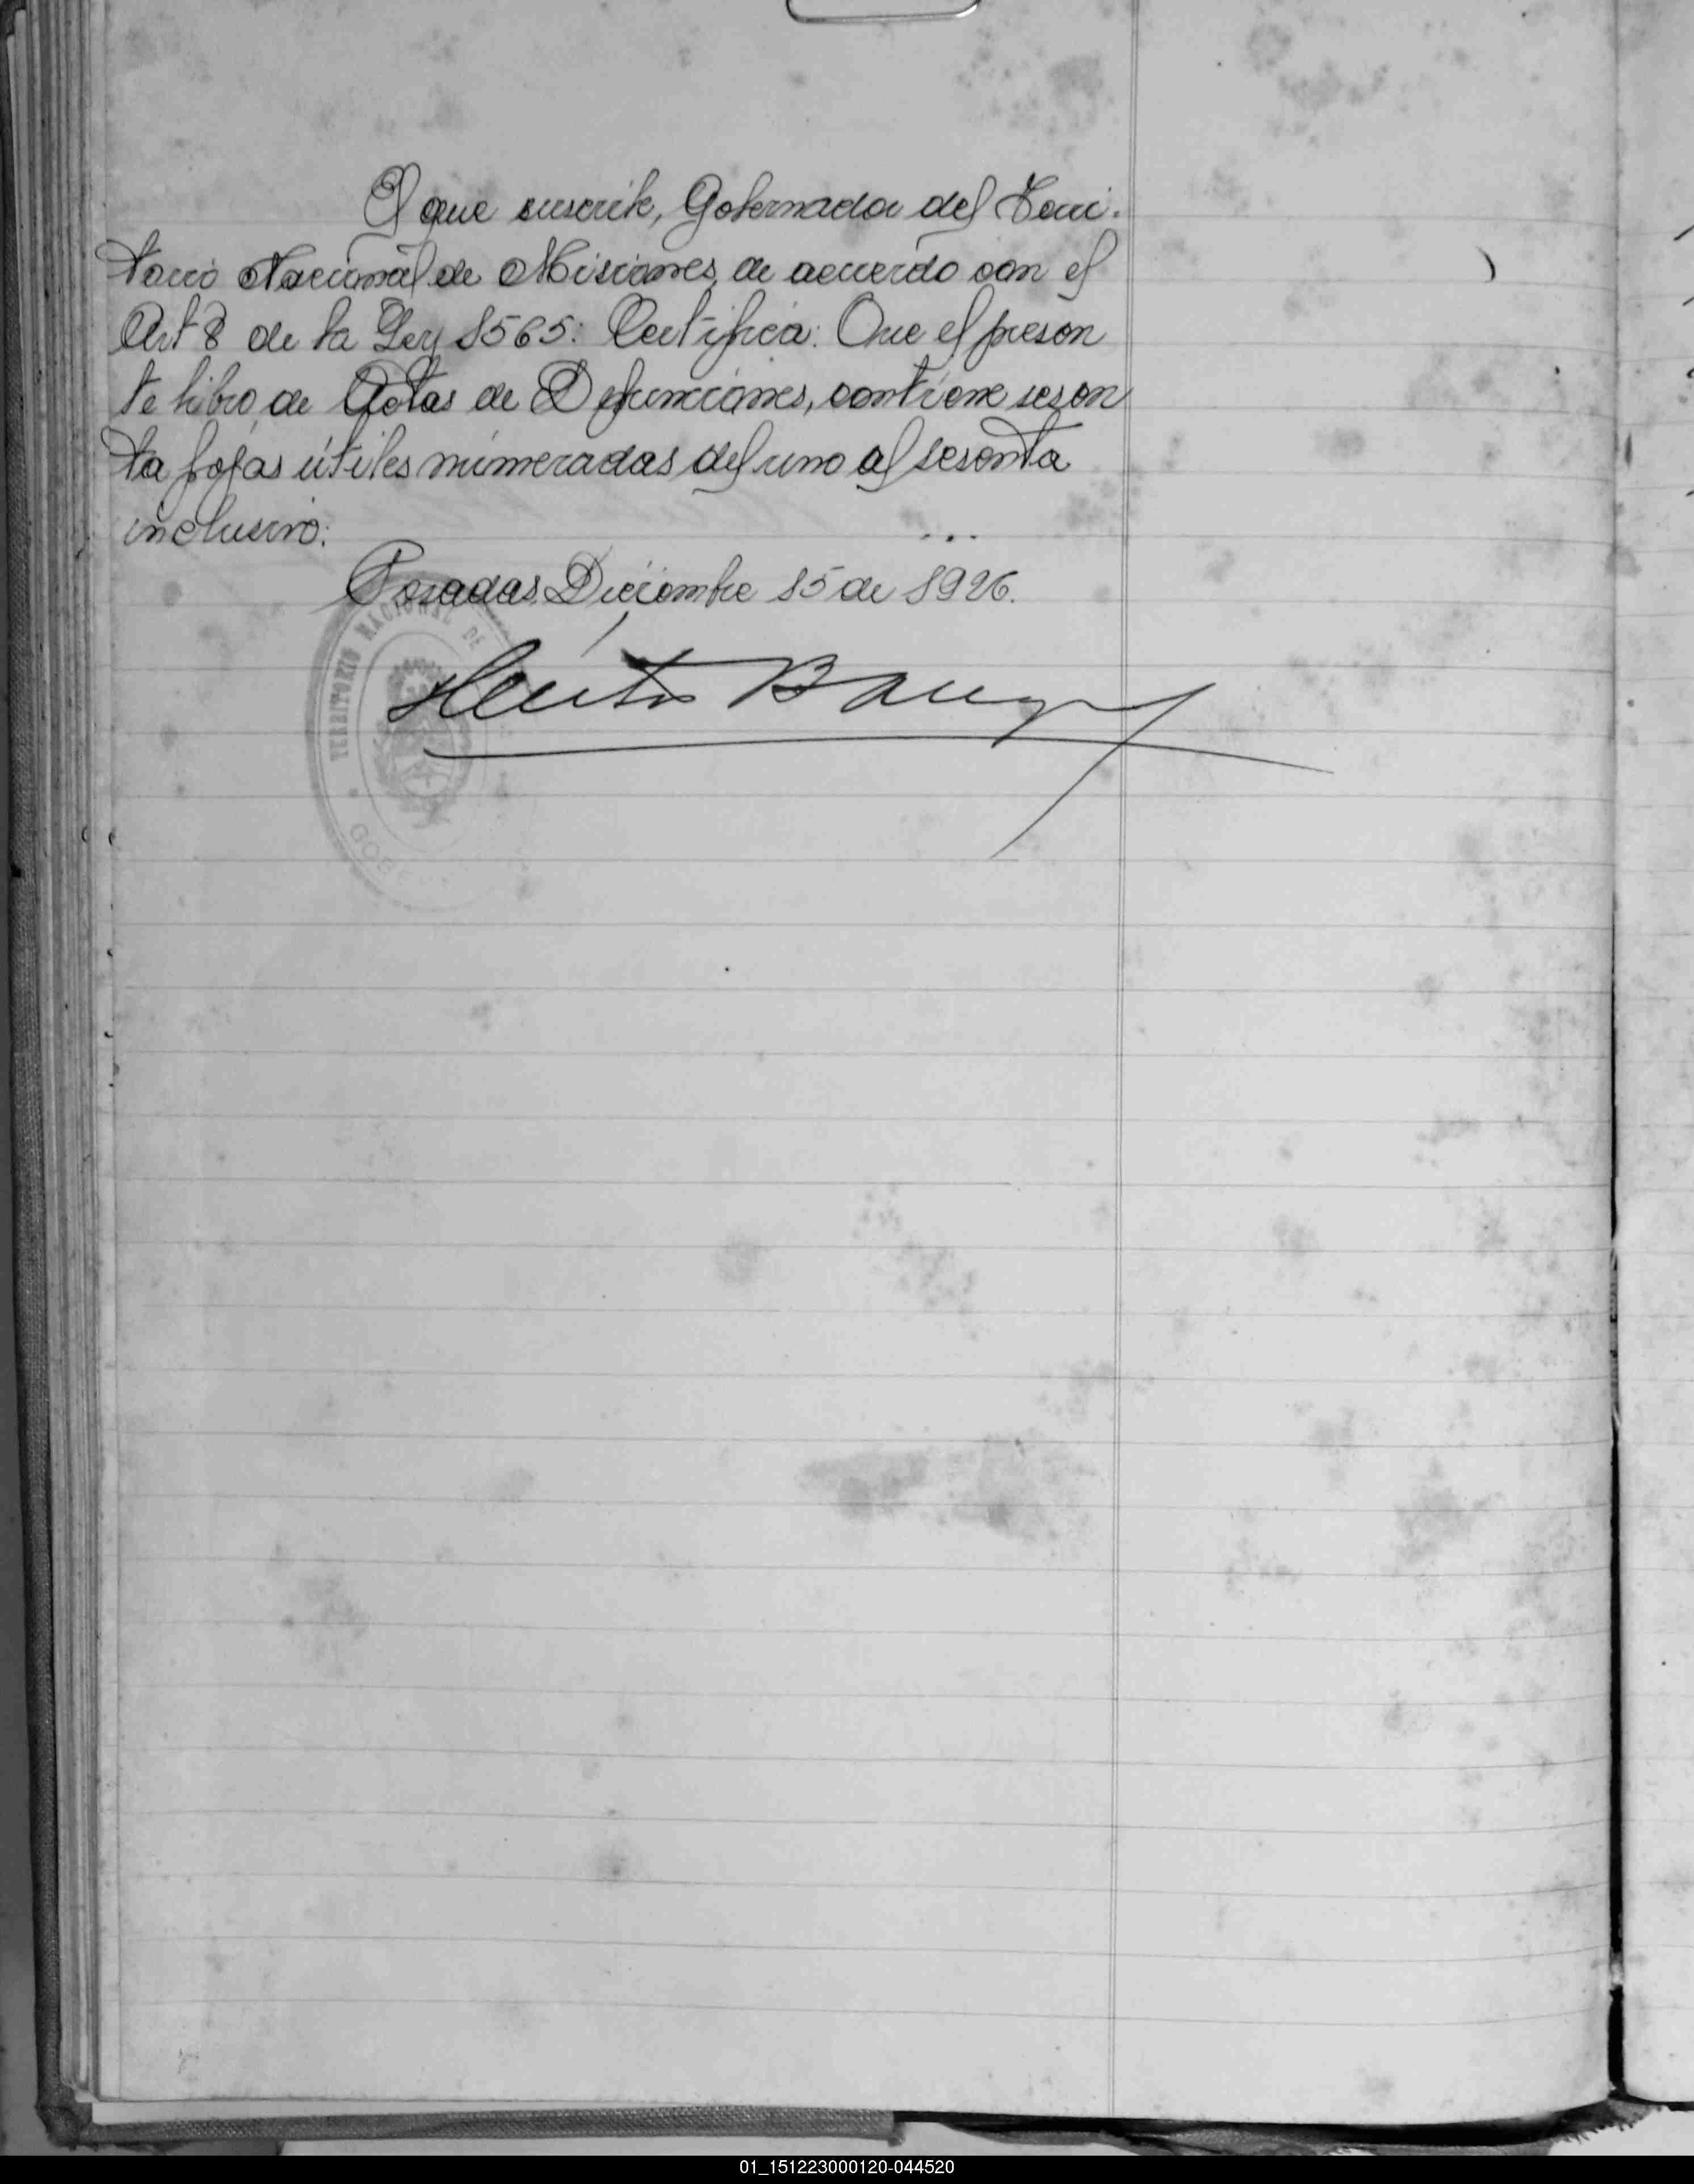 El que suscribe, Gobernador del Terri-
torio Nacional de Misiones, de acuerdo con el
Art 8 de la Ley 1565: Certifica: Que el presen
te libro, de Actas de Defunciones, contiene sesen
ta fojas útiles numeradas del uno al sesenta
inclusivo:
Posadas, Diciembre 15 de 1926.
TERRITORIO NACIONAL DE
Héctor Barreyro
01_151223000120-044520